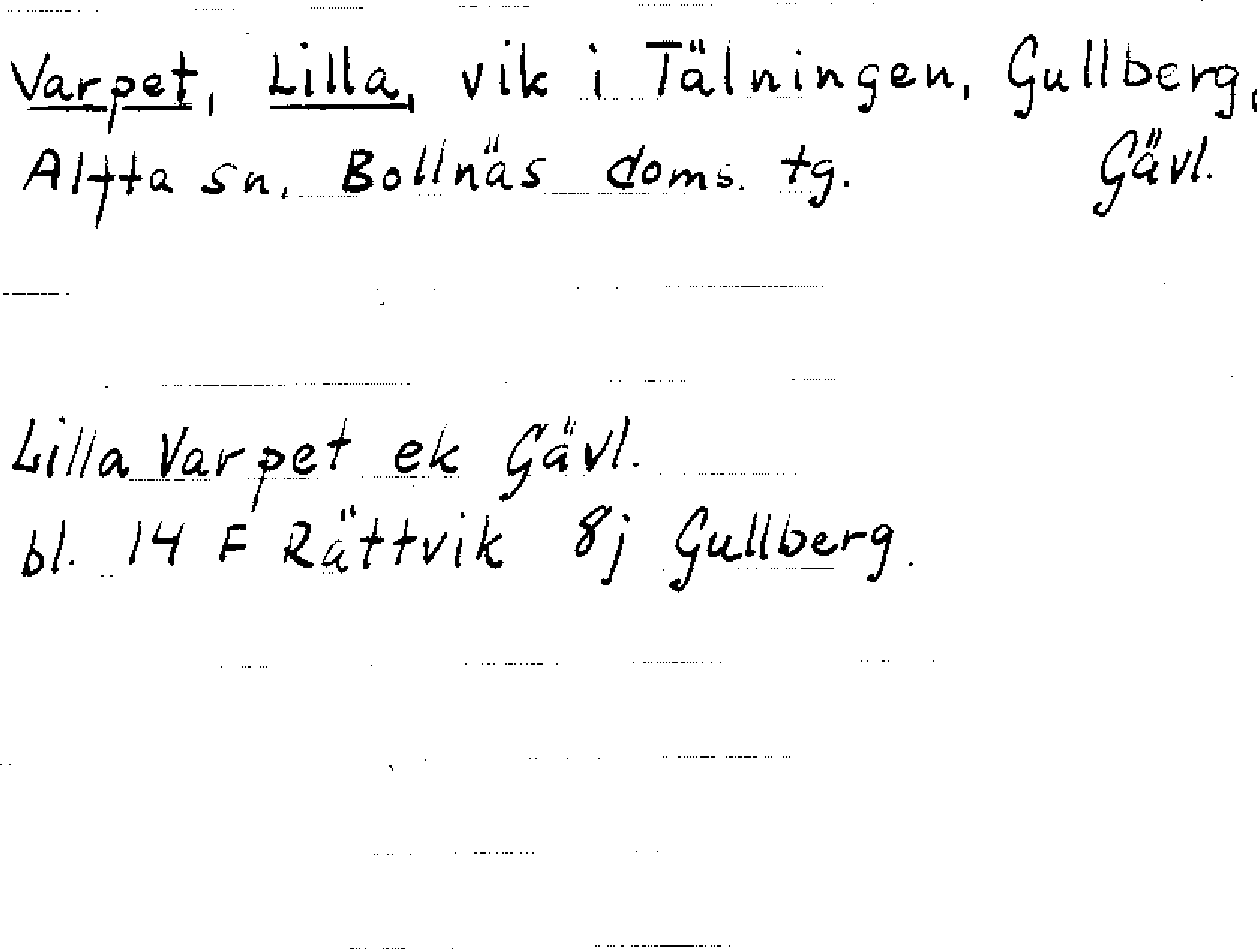 Varpet, Lilla, vik i Tälningen, Gullberg,
Alfta sn. Bollnäs doms. tg. Gävl.
Lilla Varpet ek Gävl.
bl. 14 F Rättvik 8j Gullberg.